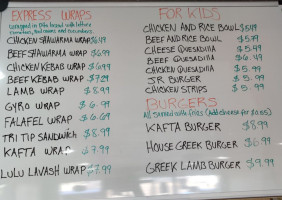 EXPRESS WRAPS
wrapped in pita bread with lettuce
tomatoes, red onions and cucumbers
CHICKEN SHAWARMA WRAP $6.49
BEEF SHAWARMA WRAP $6.99
CHICKEN KEBAB WRAP $6.99
BEEF KEBAB WRAP $7.29
LAMB WRAP $8.99
GYRO WRAP $6.99
FALAFEL WRAP $6.49
TRI TIP SANDWICH $8.99
KAFTA WRAP $7.99
LULU LAVASH WRAP $7.99
FOR KIDS
CHICKEN AND RICE BOWL $5.49
BEEF AND RICE BOWL $5.79
CHEESE QUESADILLA $5.49
BEEF QUESADILLA $6.49
CHICKEN QUESADILLA $5.99
JR. BURGER $5.99
CHICKEN STRIPS $5.99
BURGERS
All served with fries (Add cheese for $0.50)
KAFTA BURGER $8.99
HOUSE GREEK BURGER $6.99
GREEK LAMB BURGER $9.99